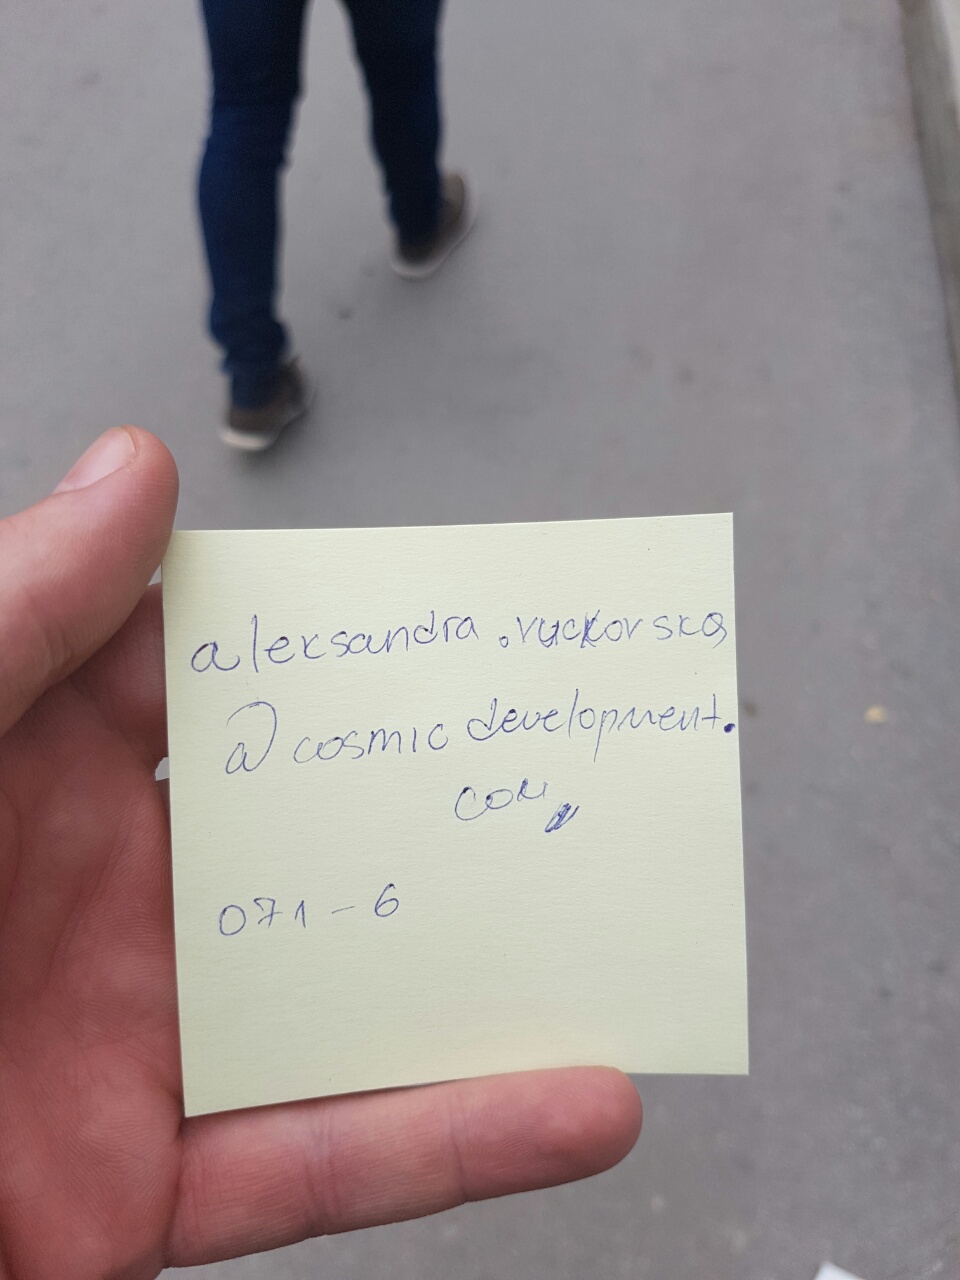 aleksandra.vuckovska
@cosmicdevelopment.
com
071-6